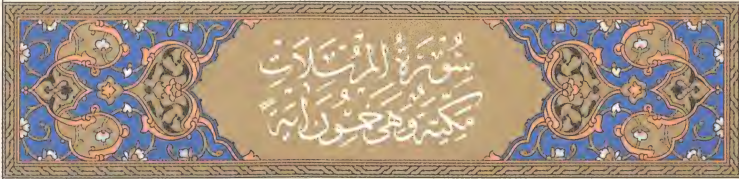 سُورَةُ المُرْسَلَاتِ
مَكِّيَّةٌ وَهِيَ خَمْسُونَ اٰيَةً